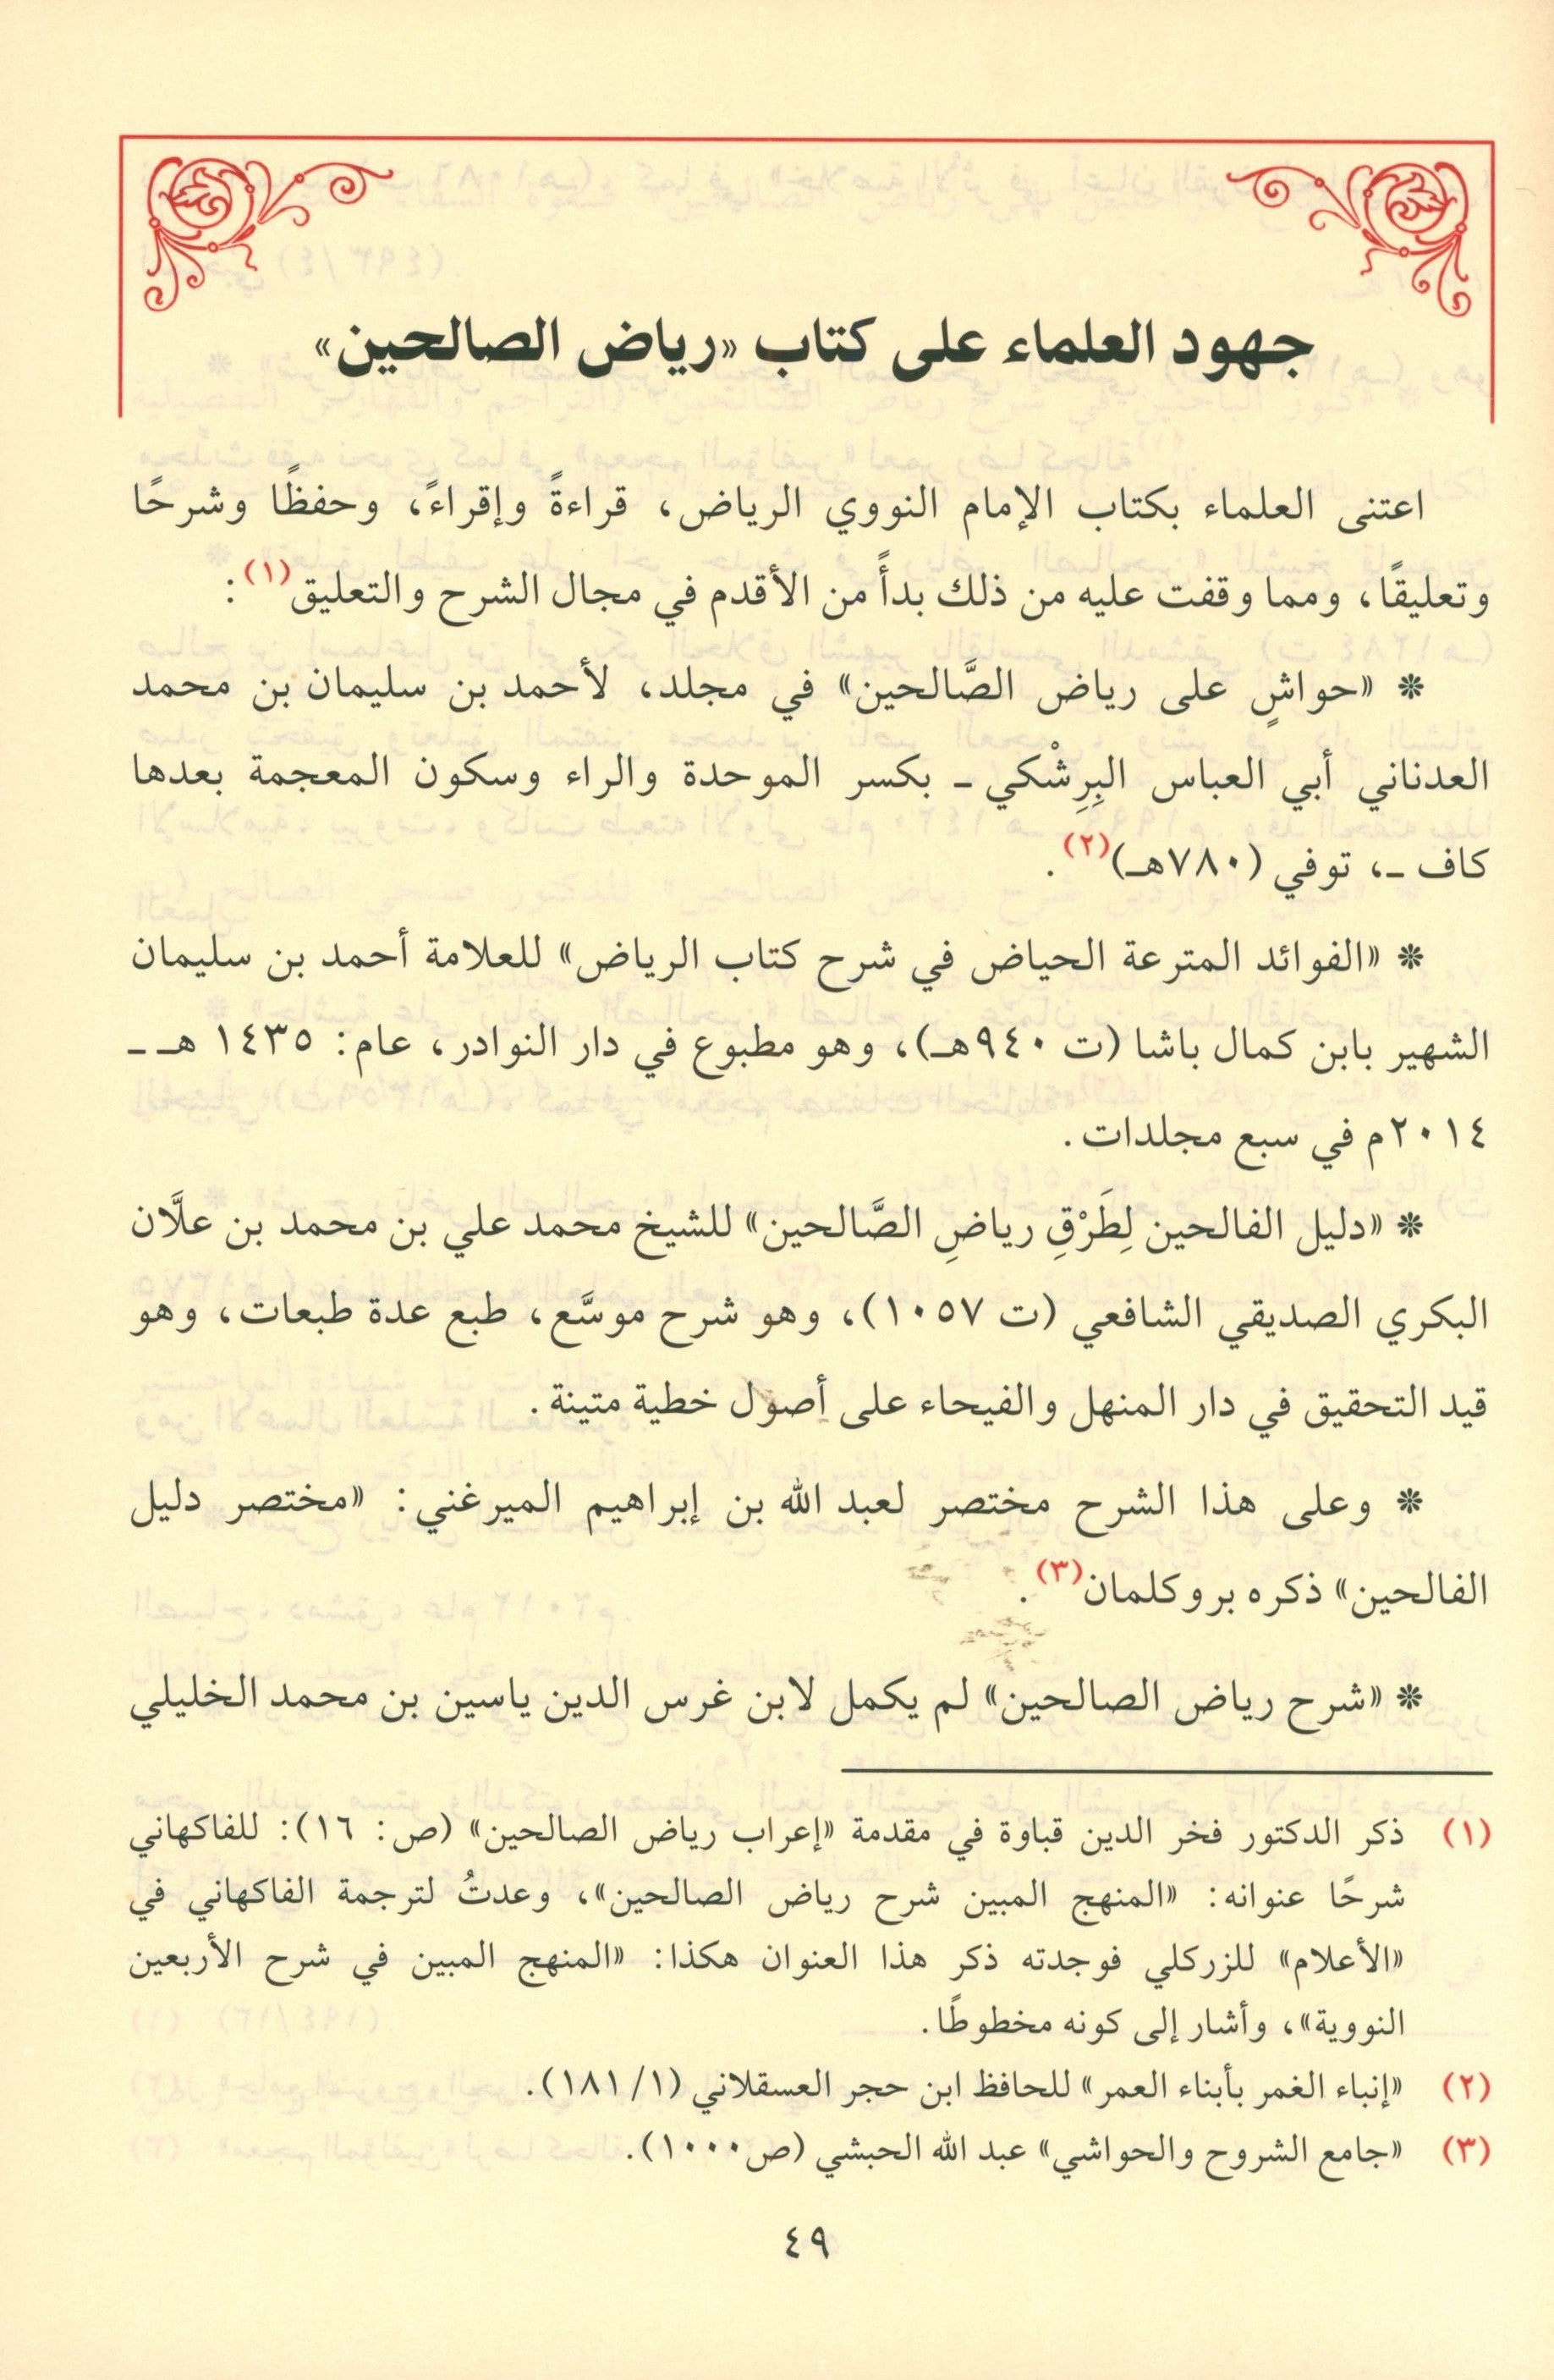 جهود العلماء على كتاب «رياض الصالحين»
اعتنى العلماء بكتاب الإمام النووي الرياض، قراءةً وإقراءً، وحفظًا وشرحًا
وتعليقًا، ومما وقفت عليه من ذلك بدأً من الأقدم في مجال الشرح والتعليق(١):
* «حواشٍ على رياض الصَّالحين» في مجلد، لأحمد بن سليمان بن محمد
العدناني أبي العباس البِرِشْكي ـ بكسر الموحدة والراء وسكون المعجمة بعدها
كاف ـ، توفي (٧٨٠هـ)(٢).
* «الفوائد المترعة الحياض في شرح كتاب الرياض» للعلامة أحمد بن سليمان
الشهير بابن كمال باشا (ت ٩٤٠هـ)، وهو مطبوع في دار النوادر، عام: ١٤٣٥ هـ ـ
٢٠١٤م في سبع مجلدات.
* «دليل الفالحين لِطَرْقِ رياضِ الصَّالحين» للشيخ محمد علي بن محمد بن علَّان
البكري الصديقي الشافعي (ت ١٠٥٧)، وهو شرح موسَّع، طبع عدة طبعات، وهو
قيد التحقيق في دار المنهل والفيحاء على أصول خطية متينة.
* وعلى هذا الشرح مختصر لعبد الله بن إبراهيم الميرغني: «مختصر دليل
الفالحين» ذكره بروكلمان(٣).
* «شرح رياض الصالحين» لم يكمل لابن غرس الدين ياسين بن محمد الخليلي
(١) ذكر الدكتور فخر الدين قباوة في مقدمة «إعراب رياض الصالحين» (ص: ١٦): للفاكهاني
شرحًا عنوانه: «المنهج المبين شرح رياض الصالحين»، وعدتُ لترجمة الفاكهاني في
«الأعلام» للزركلي فوجدته ذكر هذا العنوان هكذا: «المنهج المبين في شرح الأربعين
النووية»، وأشار إلى كونه مخطوطًا.
(٢) «إنباء الغمر بأبناء العمر» للحافظ ابن حجر العسقلاني (١/ ١٨١).
(٣) «جامع الشروح والحواشي» عبد الله الحبشي (ص١٠٠٠).
٤٩